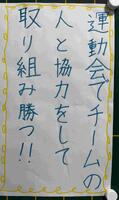 運動会でチームの
人と協力をして
取り組み勝つ!!